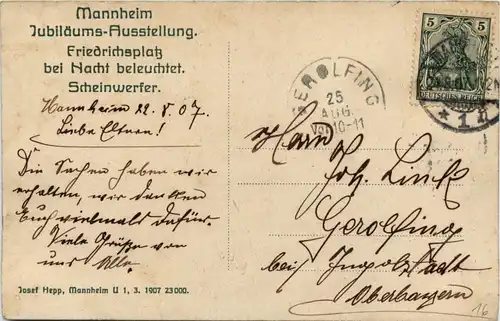 Mannheim
Jubiläums-Ausstellung.
Friedrichsplatz
bei Nacht beleuchtet.
Scheinwerfer.
Mannheim 22. 8. 07.
Liebe Eltern!
Die Sachen haben wir
erhalten, wir danken
Euch vielmals dafür.
Viele Grüße von
uns Alle
Josef Hepp, Mannheim U 1, 3. 1907 23000.
GEROLFING
25
AUG.
Vor. 10-11
5 5
DEUTSCHES REICH
* 1 h
Herrn
Joh. Link
Gerolfing
bei Ingolstadt
Oberbayern
16